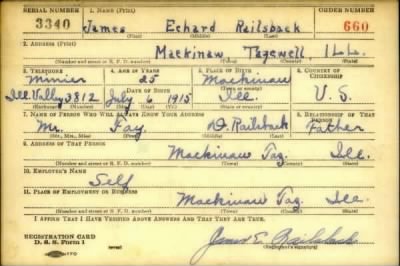 SERIAL NUMBER 1. NAME (Print) ORDER NUMBER
3340 James Echard Railsback 660
(First) (Middle) (Last)
2. ADDRESS (Print)
Mackinaw Tazewell ILL.
(Number and street or R. F. D. number) (Town) (County) (State)
3. TELEPHONE 4. AGE IN YEARS 5. PLACE OF BIRTH 6. COUNTRY OF CITIZENSHIP
Minier 25 Mackinaw
DATE OF BIRTH
Ill. Valley 3812 July 6 1915 Ill. U. S.
(Exchange) (Number) (Mo.) (Day) (Yr.) (State or country)
7. NAME OF PERSON WHO WILL ALWAYS KNOW YOUR ADDRESS 8. RELATIONSHIP OF THAT PERSON
Mr. Fay Railsback Father
(Mr., Mrs., Miss) (First) (Middle) (Last)
9. ADDRESS OF THAT PERSON
Mackinaw Taz. Ill.
(Number and street or R. F. D. number) (Town) (County) (State)
10. EMPLOYER'S NAME
Self
11. PLACE OF EMPLOYMENT OR BUSINESS
Mackinaw Taz. Ill.
(Number and street or R. F. D. number) (Town) (County) (State)
I AFFIRM THAT I HAVE VERIFIED ABOVE ANSWERS AND THAT THEY ARE TRUE.
REGISTRATION CARD
D. S. S. Form 1
James E. Railsback
(Registrant's signature)